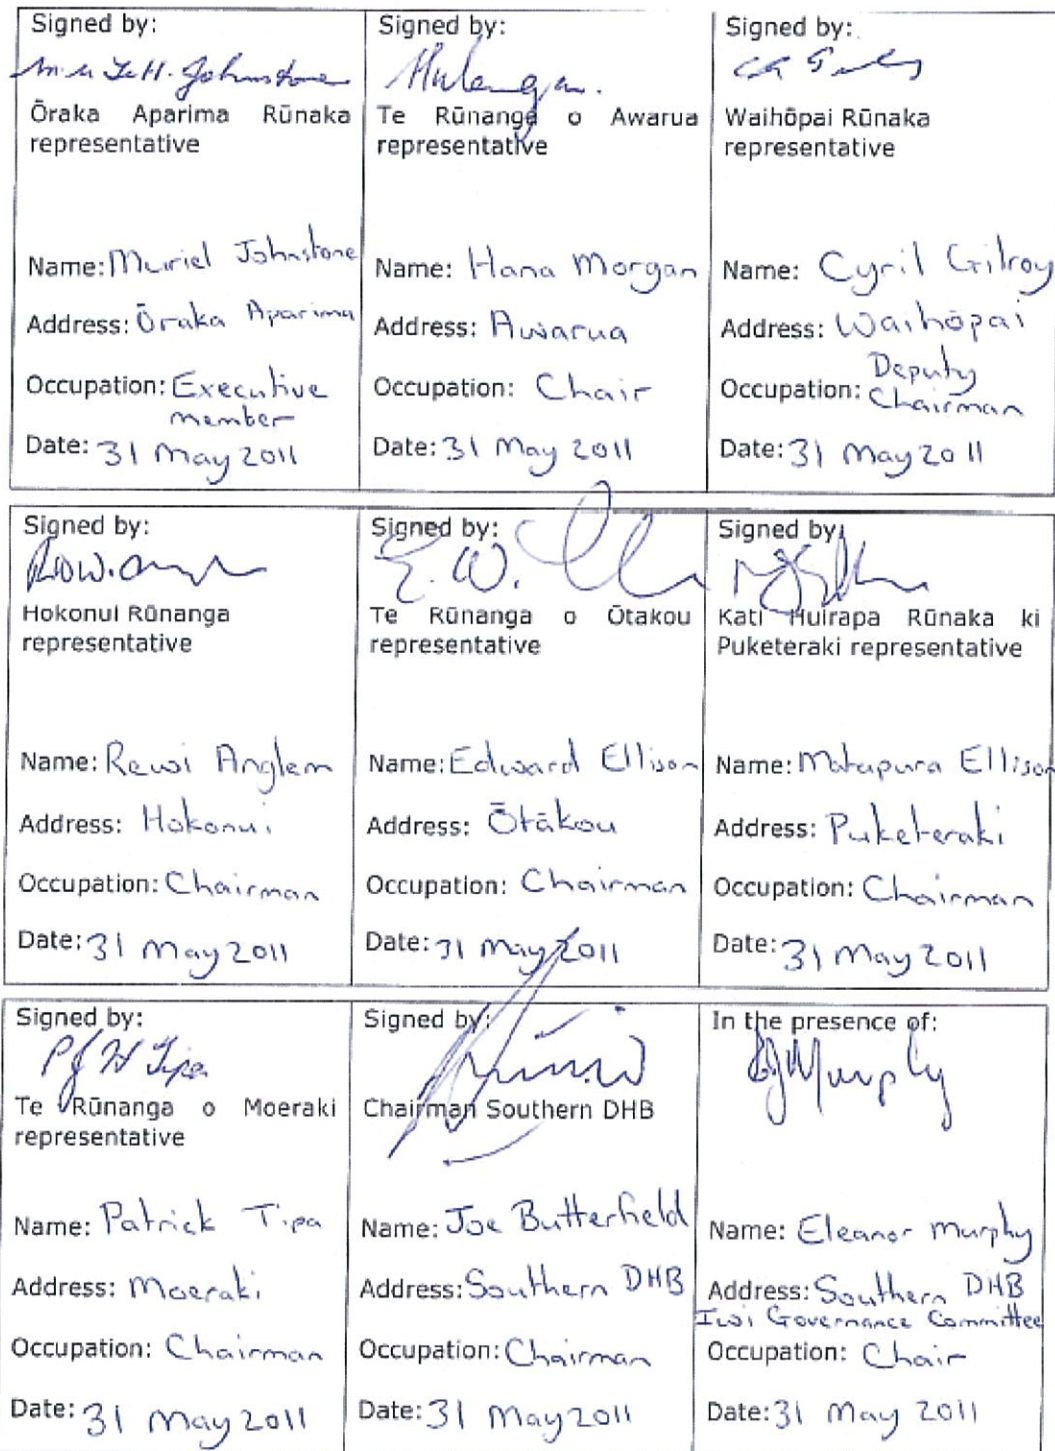 Signed by:
M M Te H. Johnstone
Ōraka Aparima Rūnaka
representative
Name: Muriel Johnstone
Address: Ōraka Aparima
Occupation: Executive
member
Date: 31 May 2011
Signed by:
Te Rūnanga o Awarua
representative
Name: Hana Morgan
Address: Awarua
Occupation: Chair
Date: 31 May 2011
Signed by:
Waihōpai Rūnaka
representative
Name: Cyril Gilroy
Address: Waihōpai
Deputy
Occupation: Chairman
Date: 31 May 2011
Signed by:
Hokonui Rūnanga
representative
Name: Rewi Anglem
Address: Hokonui
Occupation: Chairman
Date: 31 May 2011
Signed by:
E. W.
Te Rūnanga o Ōtakou
representative
Name: Edward Ellison
Address: Ōtākou
Occupation: Chairman
Date: 31 May 2011
Signed by:
Kati Huirapa Rūnaka ki
Puketeraki representative
Name: Matapura Ellison
Address: Puketeraki
Occupation: Chairman
Date: 31 May 2011
Signed by:
P J W Tipa
Te Rūnanga o Moeraki
representative
Name: Patrick Tipa
Address: Moeraki
Occupation: Chairman
Date: 31 May 2011
Signed by:
Chairman Southern DHB
Name: Joe Butterfield
Address: Southern DHB
Occupation: Chairman
Date: 31 May 2011
In the presence of:
EJ Murphy
Name: Eleanor Murphy
Address: Southern DHB
Iwi Governance Committee
Occupation: Chair
Date: 31 May 2011